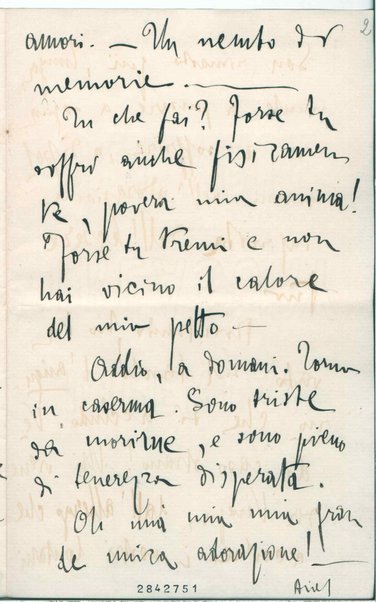 2
amori. — Un nembo di
memorie. —
Tu che fai? Forse tu
soffri anche fisicamen
te, povera mia anima!
Forse tu tremi e non
hai vicino il calore
del mio petto —
Addio, a domani. Torno
in caserma. Sono triste
da morirne, e sono pieno
di tenerezza disperata.
Oh mia mia mia gran
de unica adorazione! —
2842751
Ariel